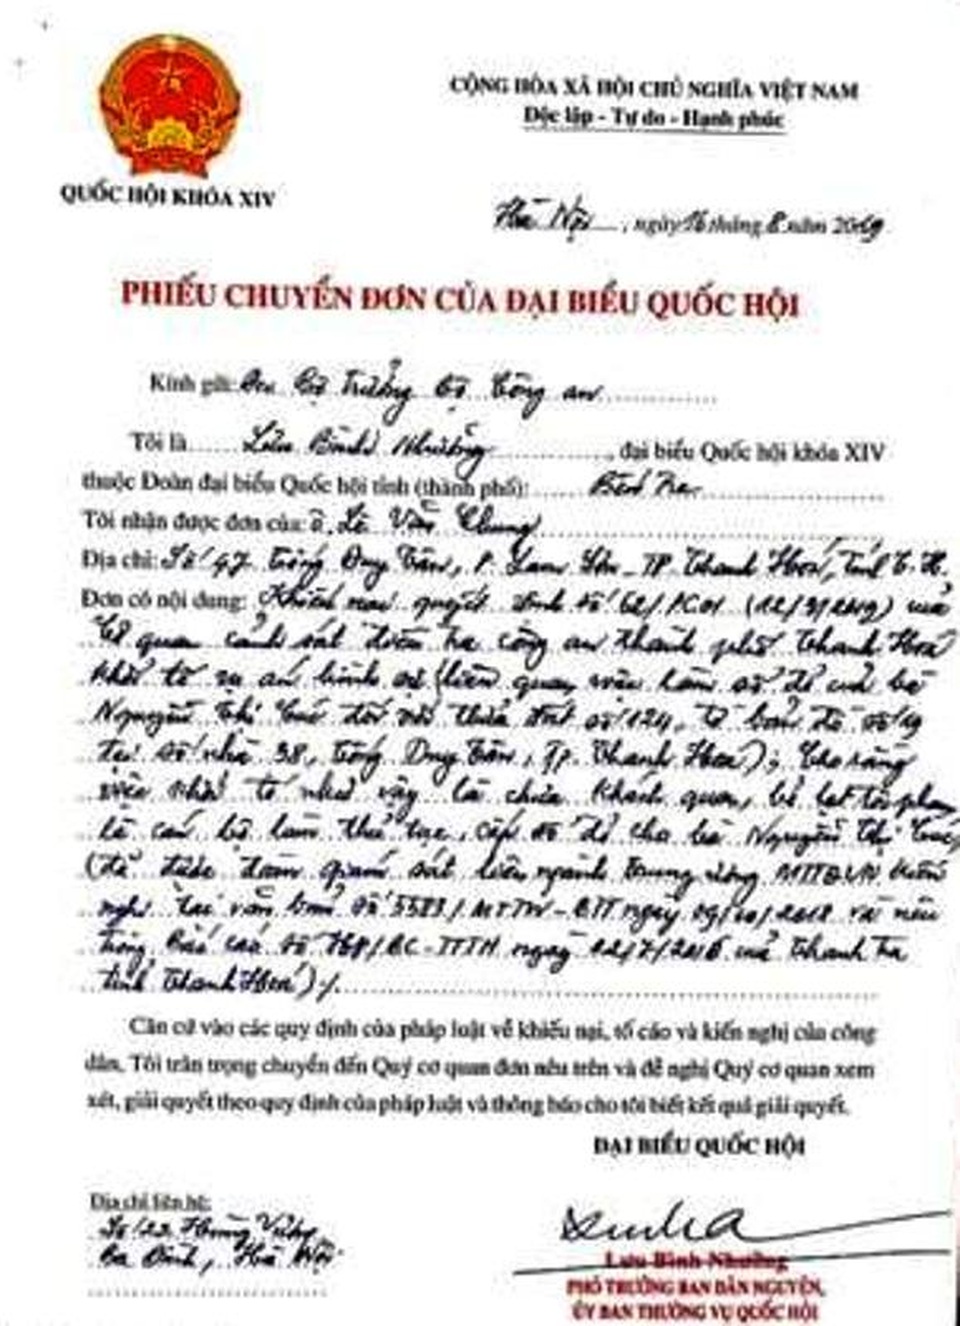 CỘNG HÒA XÃ HỘI CHỦ NGHĨA VIỆT NAM
Độc lập - Tự do - Hạnh phúc
QUỐC HỘI KHÓA XIV
Hà Nội, ngày 16 tháng 8 năm 2019
PHIẾU CHUYỂN ĐƠN CỦA ĐẠI BIỂU QUỐC HỘI
Kính gửi: Bộ trưởng Bộ Công an
Tôi là Lưu Bình Nhưỡng, đại biểu Quốc hội khóa XIV
thuộc Đoàn đại biểu Quốc hội tỉnh (thành phố): Bến Tre
Tôi nhận được đơn của: ô. Lê Văn Chung
Địa chỉ: Số 47 Tống Duy Tân, P. Lam Sơn - TP Thanh Hoá, tỉnh T.H.
Đơn có nội dung: Khiếu nại quyết định số 62/ (12/3/2019) của
Cơ quan cảnh sát điều tra công an thành phố Thanh Hoá
khởi tố vụ án hình sự (liên quan việc làm sổ đỏ của bà
Nguyễn Thị Cúc đối với thửa đất số 124, tờ bản đồ số 19
tại số nhà 38, Tống Duy Tân, Tp. Thanh Hoá); Cho rằng
việc khởi tố như vậy là chưa khách quan, bỏ lọt tội phạm
là cán bộ làm thủ tục, cấp sổ đỏ cho bà Nguyễn Thị Cúc
(đã được đoàn giám sát liên ngành trung ương MTTQVN kiến
nghị tại văn bản số 5583/MTTW-BTT ngày 09/10/2018 và nêu
trong Báo cáo số /BC-TTTH ngày 22/7/2016 của Thanh tra
tỉnh Thanh Hoá)./.
Căn cứ vào các quy định của pháp luật về khiếu nại, tố cáo và kiến nghị của công
dân, Tôi trân trọng chuyển đến Quý cơ quan đơn nêu trên và đề nghị Quý cơ quan xem
xét, giải quyết theo quy định của pháp luật và thông báo cho tôi biết kết quả giải quyết.
ĐẠI BIỂU QUỐC HỘI
Địa chỉ liên hệ:
Số 22 Hùng Vương
Ba Đình, Hà Nội
Lưu Bình Nhưỡng
PHÓ TRƯỞNG BAN DÂN NGUYỆN,
ỦY BAN THƯỜNG VỤ QUỐC HỘI